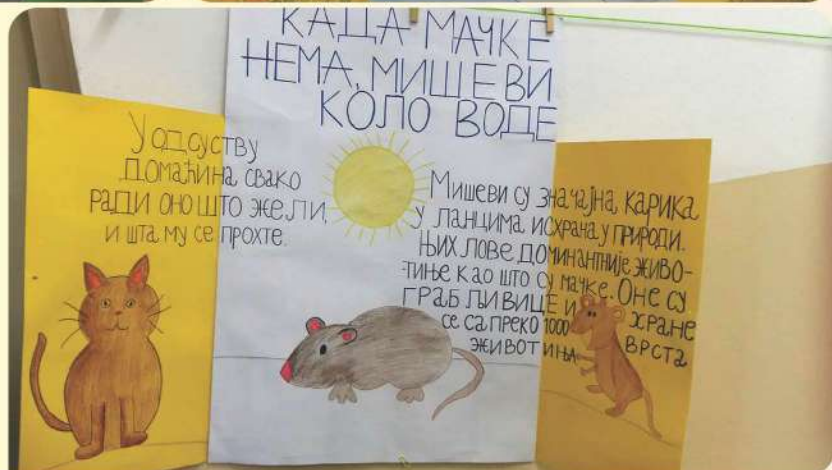 КАДА МАЧКЕ
НЕМА, МИШЕВИ
КОЛО ВОДЕ
У ОДСУСТВУ
ДОМАЋИНА СВАКО
РАДИ ОНО ШТО ЖЕЛИ,
И ШТА МУ СЕ ПРОХТЕ.
МИШЕВИ СУ ЗНАЧАЈНА КАРИКА
У ЛАНЦИМА ИСХРАНА У ПРИРОДИ.
ЊИХ ЛОВЕ ДОМИНАНТНИЈЕ ЖИВО-
-ТИЊЕ КАО ШТО СУ МАЧКЕ. ОНЕ СУ
ГРАБЉИВИЦЕ И ХРАНЕ
СЕ СА ПРЕКО 1000 ВРСТА
ЖИВОТИЊА